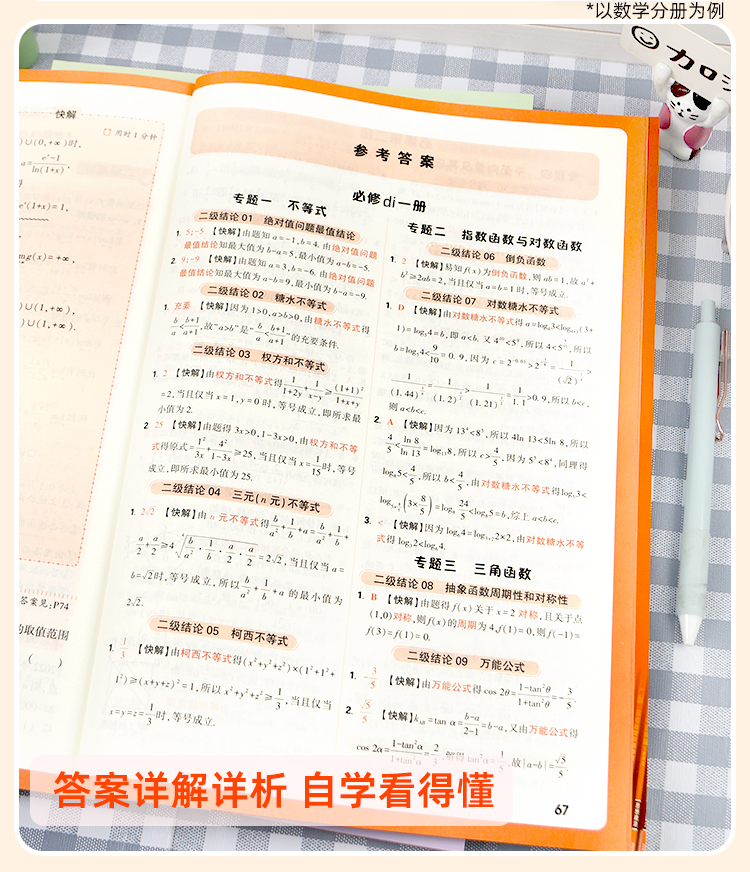 *以数学分册为例
カロ
快解
用时1分钟
)∪(0,+∞)时,
a=(e^x-1)/ln(1+x),
e^x(1+x)=1,
mg(x)=+∞,
)∪(1,+∞),
)∪(1,+∞).
答案见:P74
的取值范围
( )
参考答案
必修di一册
专题一 不等式
二级结论01 绝对值问题最值结论
1. 5;-5 【快解】由题知a=-1,b=4.由绝对值问题
最值结论知最大值为b-a=5,最小值为a-b=-5.
2. 9;-9 【快解】由题知a=3,b=-6.由绝对值问题
最值结论知最大值为a-b=9,最小值为b-a=-9.
二级结论02 糖水不等式
1. 充要 【快解】因为1>0,a>b>0,由糖水不等式得
b/a<(b+1)/(a+1),故“a>b”是“b/a<(b+1)/(a+1)”的充要条件.
二级结论03 权方和不等式
1. 2 【快解】由权方和不等式得1/(1+2y)+1/(x-y)≥(1+1)²/(1+x+y)
=2,当且仅当x=1,y=0时,等号成立,即所求最
小值为2.
2. 25 【快解】由题得3x>0,1-3x>0,由权方和不等
式得原式=1²/3x+4²/(1-3x)≥25,当且仅当x=1/15时,等号
成立,即所求最小值为25.
二级结论04 三元(n元)不等式
1. 2√2 【快解】由n元不等式得b/a²+1/b+a=b/a²+1/b+
a/2+a/2≥4∜(b/a²·1/b·a/2·a/2)=2√2,当且仅当a=
b=√2时,等号成立,所以b/a²+1/b+a的最小值为
2√2.
二级结论05 柯西不等式
1. 1/3 【快解】由柯西不等式得(x²+y²+z²)×(1²+1²+
1²)≥(x+y+z)²=1,所以x²+y²+z²≥1/3,当且仅当
x=y=z=1/3时,等号成立.
专题二 指数函数与对数函数
二级结论06 倒负函数
1. 2 【快解】易知f(x)为倒负函数,则ab=1,故a²+
b²≥2ab=2,当且仅当a=b=1时,等号成立.
二级结论07 对数糖水不等式
1. D 【快解】由对数糖水不等式得
所以b<c,
则a<b<c.
2. A 【快解】因为13⁴<8⁵,所以4ln 13<5ln 8,所以
4/5<ln 8/ln 13=log₁₃8,所以c>4/5,因为5⁵<8⁴,同理得
log₈5<4/5,所以b<4/5,由对数糖水不等式得log₅3<
综上a<b<c.
3. < 【快解】因为
由对数糖水不等
式得log₃2<log₆4.
专题三 三角函数
二级结论08 抽象函数周期性和对称性
1. B 【快解】由题得f(x)关于x=2对称,且关于点
(1,0)对称,则f(x)的周期为4,f(1)=0,则f(-1)=
f(3)=f(1)=0.
二级结论09 万能公式
1. -3/5 【快解】由万能公式得cos 2θ=(1-tan²θ)/(1+tan²θ)=-3/5.
2. √5/5 【快解】k_AB=tan α=(b-a)/(2-1)=b-a,又由万能公式得
cos 2α=(1-tan²α)/(1+tan²α)=2/3,解得tan²α=1/5,故|a-b|=√5/5.
67
答案详解详析 自学看得懂